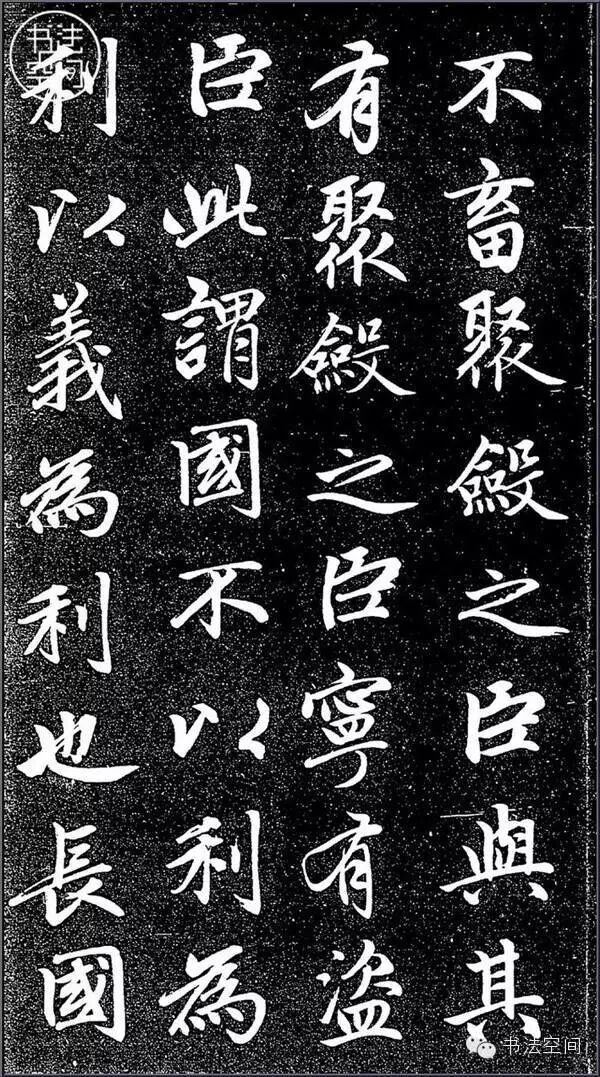 不畜聚斂之臣與其
有聚斂之臣寧有盜
臣此謂國不以利為
利以義為利也長國
书法空间
书法空间